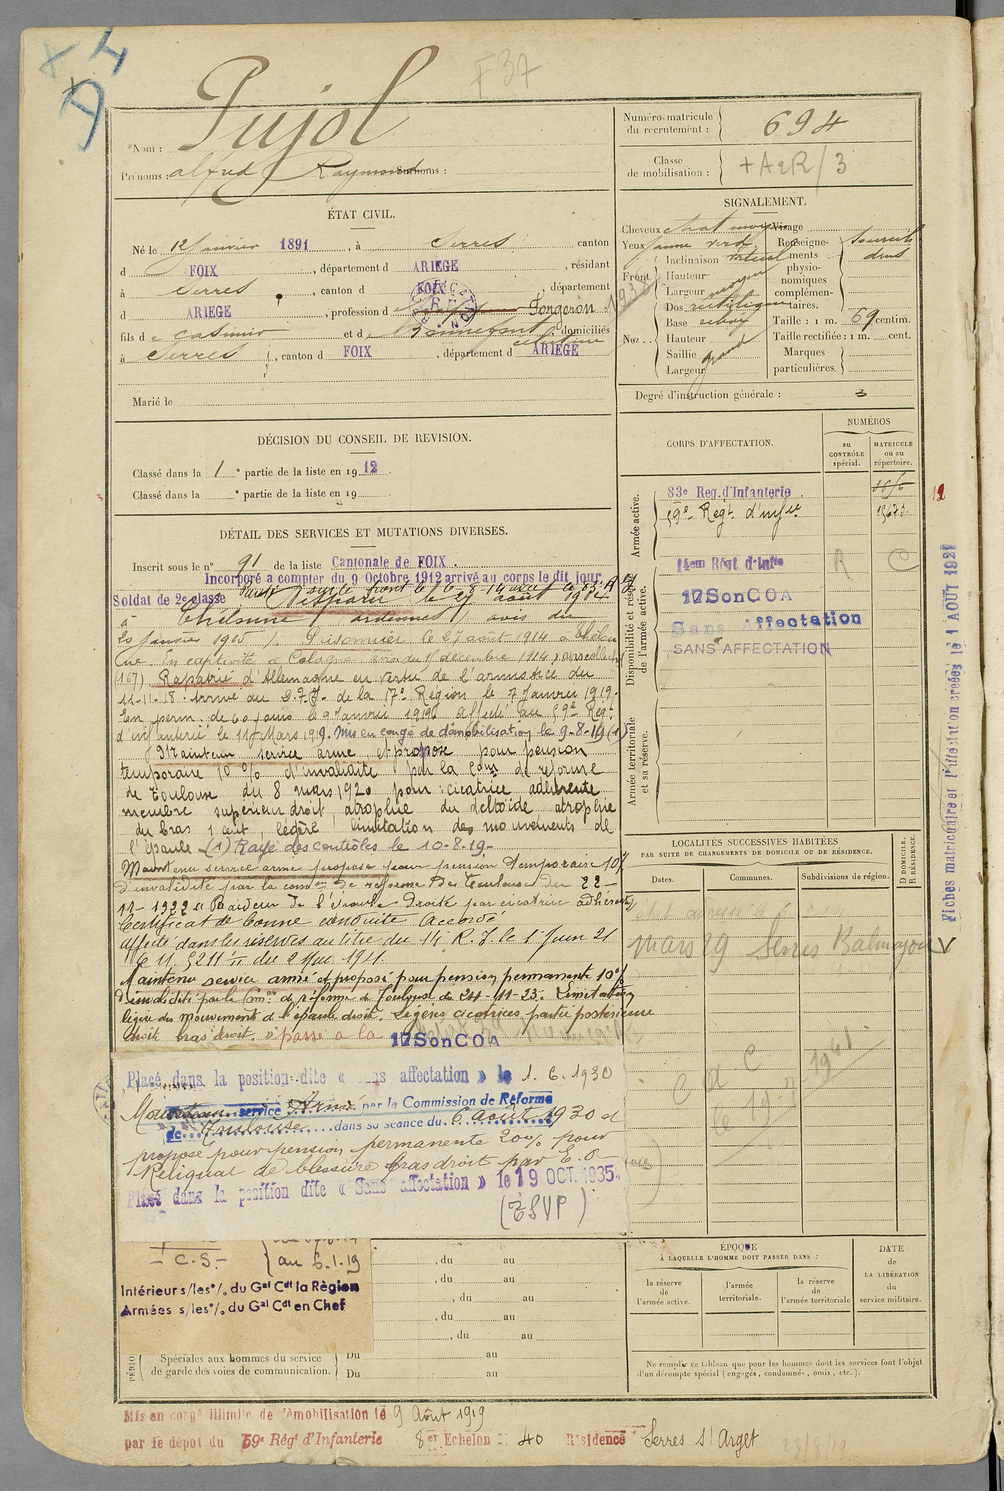 F37
Nom : Pujol
Prénoms : alfred Raymond Surnoms :
Numéro matricule du recrutement : 694
Classe de mobilisation : + A2R/3
ÉTAT CIVIL.
Né le 12 Janvier 1891, à Serres canton
d FOIX, département d ARIEGE, résidant
à Serres, canton d FOIX, département
d ARIEGE, profession d
fils de Casimir et de domiciliés
à Serres, canton d FOIX, département d ARIEGE
Marié le
SIGNALEMENT.
Cheveux chat moyen Visage
Yeux jaune verd. Renseignements physionomiques complémentaires. sourcils drus
Front Inclinaison vertical
Hauteur moyen
Largeur moyen
Nez Dos rectiligne
Base relevé
Hauteur
Saillie grand
Largeur
Taille : 1 m. 69 centim.
Taille rectifiée : 1 m. cent.
Marques particulières.
Degré d'instruction générale : 3
DÉCISION DU CONSEIL DE REVISION.
Classé dans la 1e partie de la liste en 1912
Classé dans la e partie de la liste en 19
DÉTAIL DES SERVICES ET MUTATIONS DIVERSES.
Inscrit sous le n° 91 de la liste Cantonale de FOIX.
Incorporé a compter du 9 Octobre 1912 arrivé au corps le dit jour
Soldat de 2e classe
Disparu le 27 août 1914
à Thélonne (ardennes) avis du
25 janvier 1915 /. Prisonnier le 27 août 1914 à Thélon
ne. En captivité à Cologne avis du 15 décembre 1914
(167) Rapatrié d'Allemagne en vertu de l'armistice du
11-11-18. Arrivé au D.T.I. de la 17e Région le 7 Janvier 1919.
En perm. de 60 jours le 9 Janvier 1919 affecté au 59e Regt
d'infanterie le 11 Mars 1919. Mis en congé de démobilisation le 9-8-19 (1)
Maintenu service armé et proposé pour pension
temporaire 10 % d'invalidité par la Comon de reforme
de Toulouse du 8 mars 1920 pour : cicatrice adhérente
membre supérieur droit, atrophie du deltoïde atrophie
du bras droit, légère limitation des mouvements de
l'épaule (1) Rayé des contrôles le 10-8-19-
Maintenu service armé proposé pour pension temporaire 10 %
d'invalidité par la comon de reforme de Toulouse du 22-
11-1922 Raideur de l'épaule droite par cicatrice adhérente
Certificat de bonne conduite Accordé
affecté dans les réserves au titre du 14e R. I. le 1 Juin 21
Maintenu service armé et proposé pour pension permanente 10 %
d'invalidité par la Comon de réforme de Toulouse du 24-11-23. Limitation
légère des mouvements de l'épaule droite. Légères cicatrices partie postérieure
droite bras droit. passé a la 17 Son COA
Placé dans la position dite « Sans affectation » le 1. 6. 1930
Maintenu service Armé par la Commission de Réforme
de Toulouse dans sa séance du 6 août 1930 et
proposé pour pension permanente 20 % pour
Reliquat de blessure bras droit par E. O.
Placé dans la position dite « Sans affectation » le 19 OCT. 1935
(TSVP)
- C.S.- au 6.1.19
Intérieur s/les % du Gal Cdt la Région
Armées s/les % du Gal Cdt en Chef
, du au
, du au
, du au
, du au
, du au
Spéciales aux hommes du service de garde des voies de communication. Du au
Du au
CORPS D'AFFECTATION.
NUMÉROS
au CONTRÔLE spécial.
MATRICULE ou au répertoire.
Armée active.
83e Reg. d'Infanterie
59e Regt. d'infie
12
Disponibilité et réserve de l'armée active.
14em Régt d'Infie R C
17 Son COA
Sans Affectation
SANS AFFECTATION
Armée territoriale et sa réserve.
LOCALITÉS SUCCESSIVES HABITÉES
PAR SUITE DE CHANGEMENTS DE DOMICILE OU DE RÉSIDENCE.
Dates. Communes. Subdivisions de région. D DOMICILE. R RÉSIDENCE.
mars 29 Serres
1941
ÉPOQUE
À LAQUELLE L'HOMME DOIT PASSER DANS :
la réserve de l'armée active.
l'armée territoriale.
la réserve de l'armée territoriale
DATE de LA LIBÉRATION du service militaire.
Ne remplir ce tableau que pour les hommes dont les services font l'objet
d'un décompte spécial (engagés, condamnés, omis, etc.).
Fiches matriculaire et d'affectation créées le 1 AOUT 1921
Mis en congé illimité de démobilisation le 9 Août 1919
par le dépôt du 59e Régt d'Infanterie 8e Echelon N° 40 Résidence Serres s/ Arget